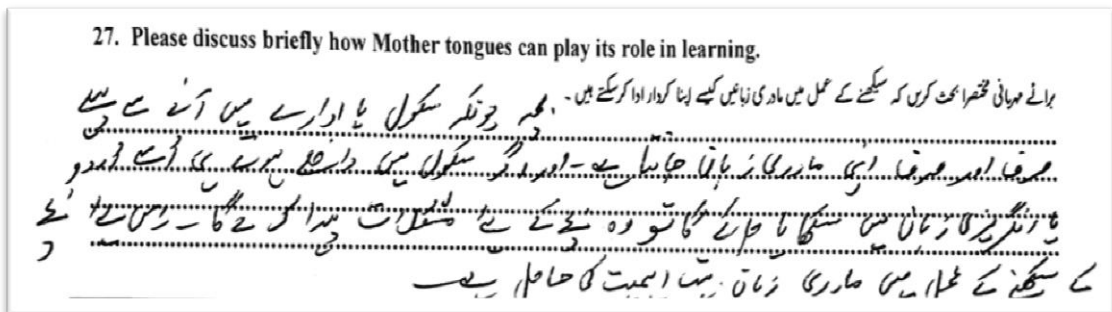 27. Please discuss briefly how Mother tongues can play its role in learning.
برائے مہربانی مختصرا بحث کریں کہ سیکھنے کے عمل میں مادری زبانیں کیسے اپنا کردار ادا کرسکتے ہیں۔
بچہ چونکہ سکول یا ادارے میں آنے سے پہلے
صرف اور صرف اپنی مادری زبان جانتا ہے۔ اور اگر سکول میں داخل ہوتے ہی اُسے اُردو
یا انگریزی زبان میں سکھایا جائے گا تو وہ بچے کے لیے مشکلات پیدا کرے گا۔ اس لئے بچے
کے سیکھنے کے عمل میں مادری زبان بہت اہمیت کی حامل ہے۔